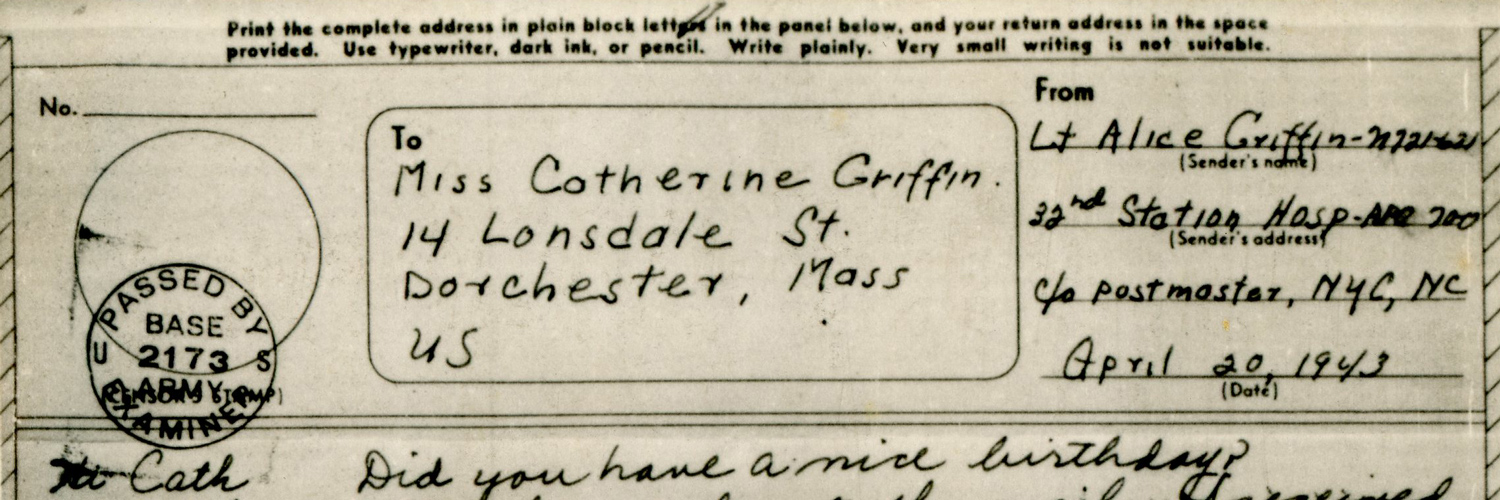 Print the complete address in plain block letters in the panel below, and your return address in the space
provided. Use typewriter, dark ink, or pencil. Write plainly. Very small writing is not suitable.
No.
PASSED BY
BASE
U 2173 S
ARMY
EXAMINER
(CENSOR'S STAMP)
To
Miss Catherine Griffin.
14 Lonsdale St.
Dorchester, Mass
US
From
Lt Alice Griffin-
(Sender's name)
32nd Station Hosp-APO 700
(Sender's address)
c/o postmaster, NYC, NC
April 20, 1943
(Date)
Cath Did you have a nice birthday?